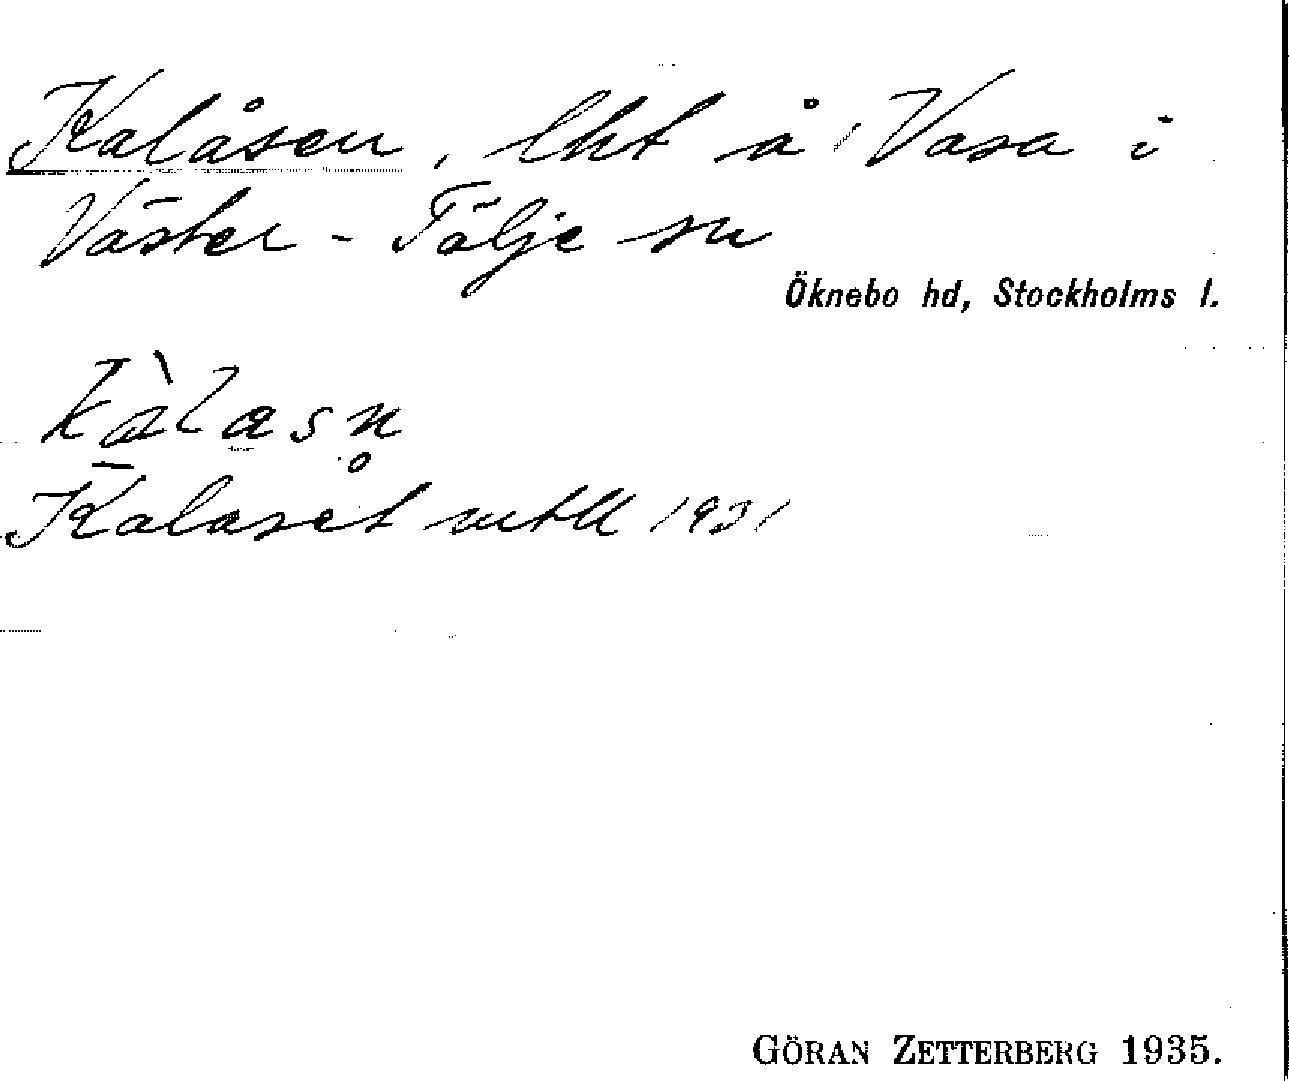 Kalåsen, lht å Vasa i
Väster-Tälje sn
Öknebo hd, Stockholms l.
kàlasn̥
Kalaset mtll 1931
GÖRAN ZETTERBERG 1935.